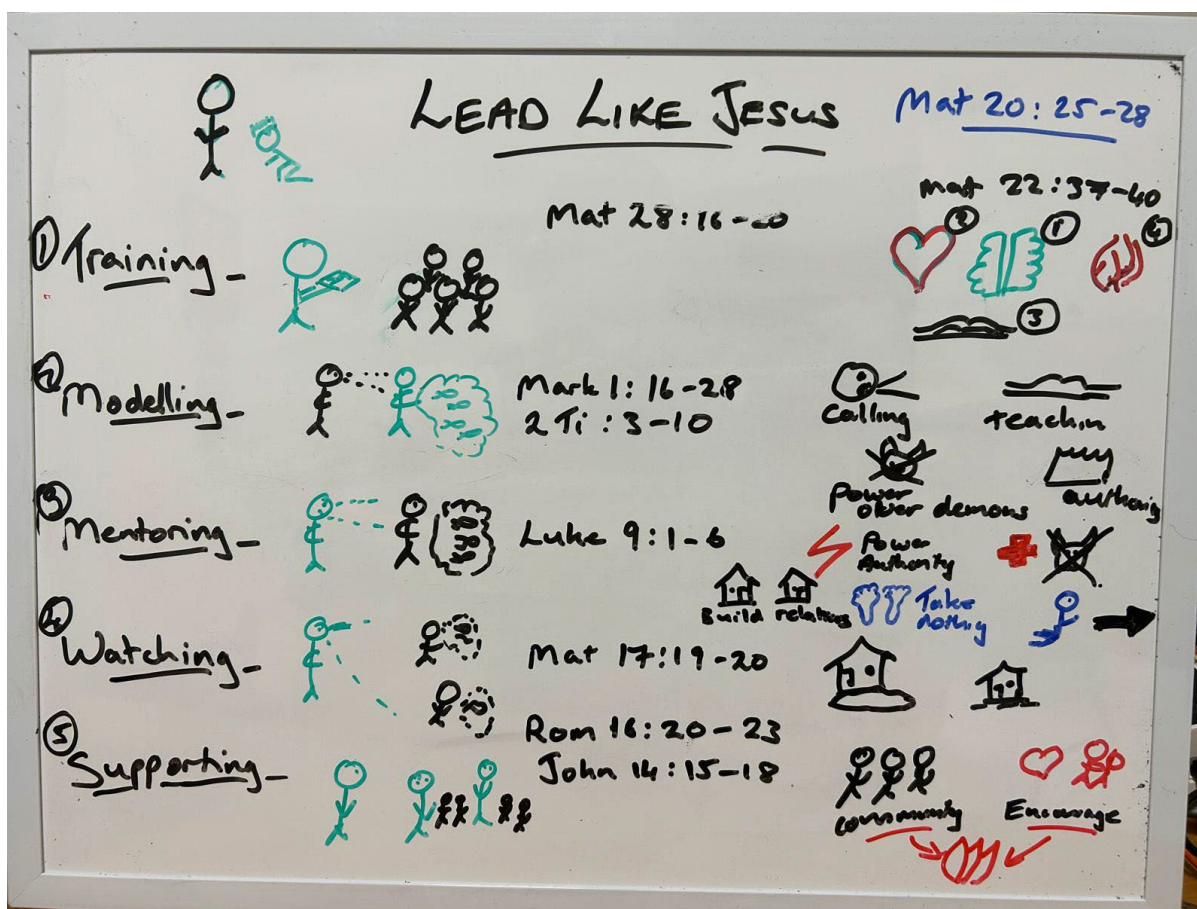 LEAD LIKE JESUS
Mat 20:25-28
Mat 28:16-20
Mat 22:37-40
① Training -
② ① ④
③
② Modelling -
Mark 1:16-28
2 Ti : 3-10
Calling
teachin
Power over demons
authority
③ Mentoring -
Luke 9:1-6
Power
Authority
Build relations
Take
nothing
④ Watching -
Mat 17:19-20
⑤ Supporting -
Rom 16:20-23
John 14:15-18
community
Encourage